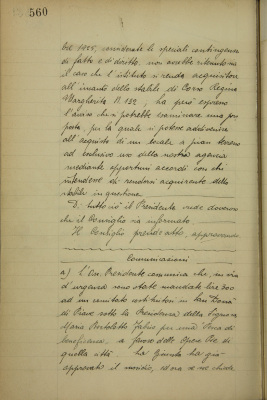 560
del 1925, considerate le speciali contingenze
di fatto e di diritto, non avrebbe ritenuto
il caro che l'istituto si renda acquisitore
all'incanto dello stabile di Corso Regina
Margherita N. 152, ha però espresso
l'avviso che si potrebbe esaminare una pro
posta, per la quale si potesse addivenire
all'acquisto di un locale a pian terreno
ad esclusivo uso della nostra agenzia
mediante opportuni accordi con chi
intendesse di rendersi acquirente dello
stabile in questione.
Di tutto ciò il Presidente crede doveroso
che il Consiglio sia informato.
Il Consiglio prende atto, approvando
Comunicazioni
a) L'On. Presidente comunica che, in via
d'urgenza sono state mandate lire 300
ad un comitato costituitosi in San Donà
di Piave sotto la Presidenza della Signora
Maria Bortolotto per una Fiera di
beneficenza, a favore delle Opere Pie di
quella città. La Giunta ha già
approvato il sussidio, ed ora se ne chiede